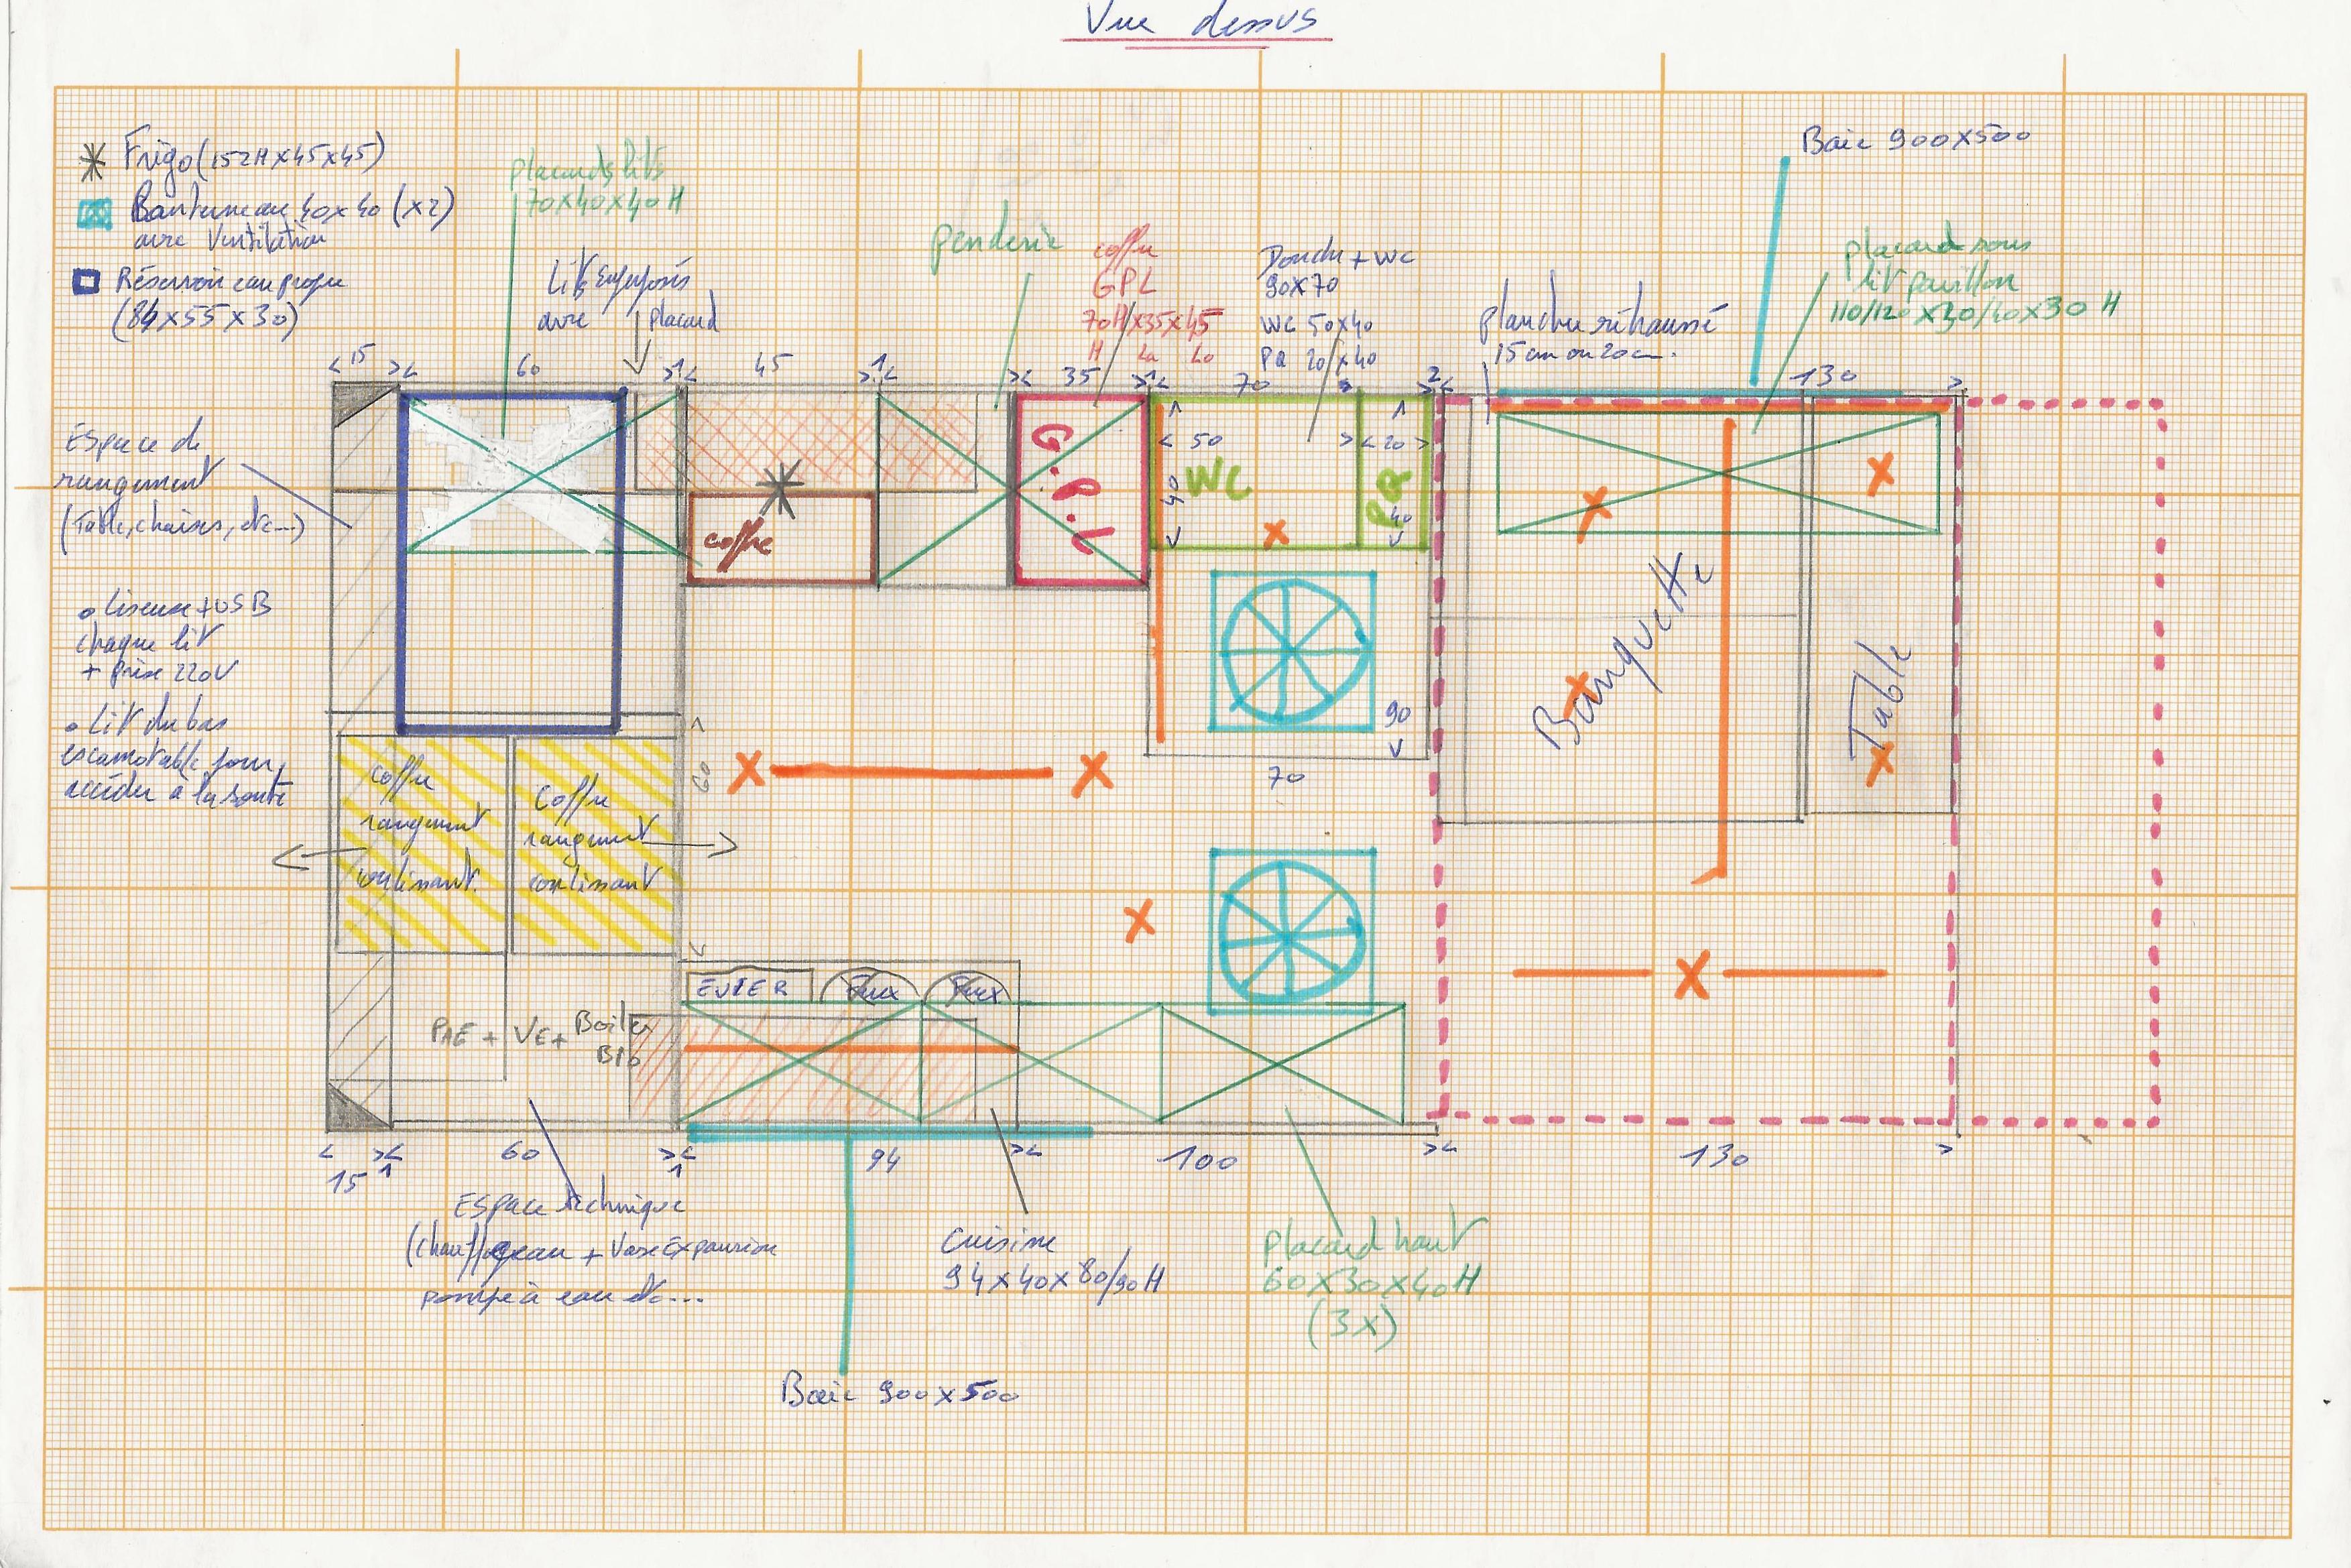 Vue dessus
Frigo (152H x 45 x 45)
40x40 (x2)
avec Ventilation
Réservoir eau propre
(84 x 55 x 30)
placards lits
70x40x40 H
Lits superposés
avec placard
penderie
coffre
GPL
70H x 35 x 45
H La Lo
Douche + WC
90x70
WC 50x40
PQ 20 x 40
plancher réhaussé
15 cm ou 20 cm.
Baie 900x500
placard sous
lit pavillon
110/120 x 30/40 x 30 H
15 60 1 45 1 35 1 70 2 130
Espace de
rangement
(Table, chaises, etc...)
o Liseuse + USB
chaque lit
+ prise 220V
o Lit du bas
escamotable pour
accéder à la soute
coffre
G.P.L
50
20
WC
40
PQ
40
90
70
Banquette
Table
60
Coffre
rangement
coulissant.
Coffre
rangement
coulissant
EVIER Feux Feux
PAE + VE + Boiler
15 1 60 1 94 100 130
Espace technique
(chauffe eau + Vase Expansion
pompe à eau etc...
Cuisine
94 x 40 x 80/90H
placard haut
60x30x40H
(3x)
Baie 900x500